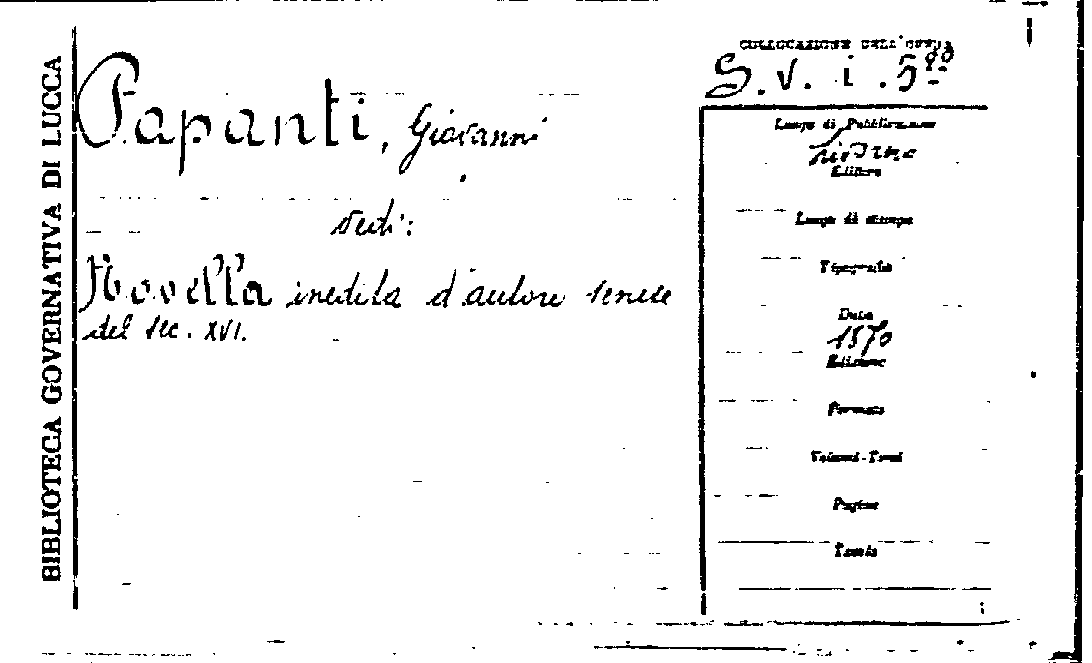 BIBLIOTECA GOVERNATIVA DI LUCCA
Papanti, Giovanni
Vedi:
Novella inedita d'autore senese
del sec. XVI.
COLLOCAZIONE DELL'OPERA
S. V. i. 5
Luogo di Pubblicazione
Livorno
Editore
Luogo di stampa
Tipografia
Data
1870
Edizione
Formato
Volumi-Tomi
Pagine
Tavole